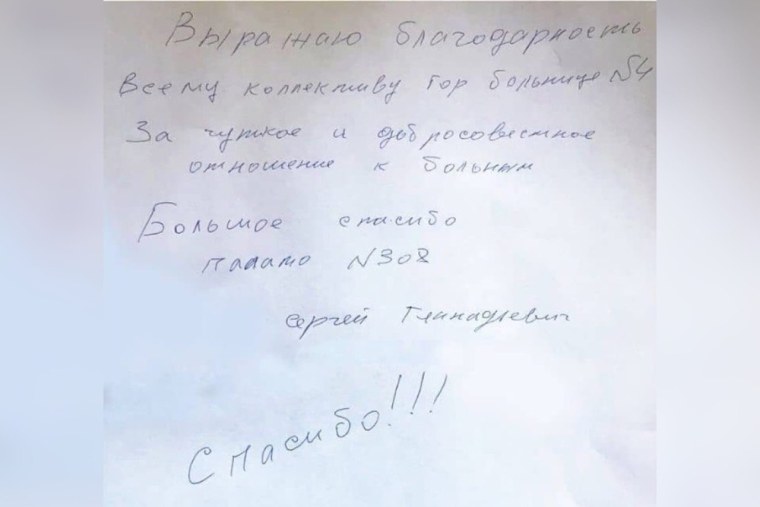 Выражаю благодарность
Всему коллективу Гор больнице №4
За чуткое и добросовестное
отношение к больным
Большое спасибо
палата N308
Сергей Геннадьевич
Спасибо!!!